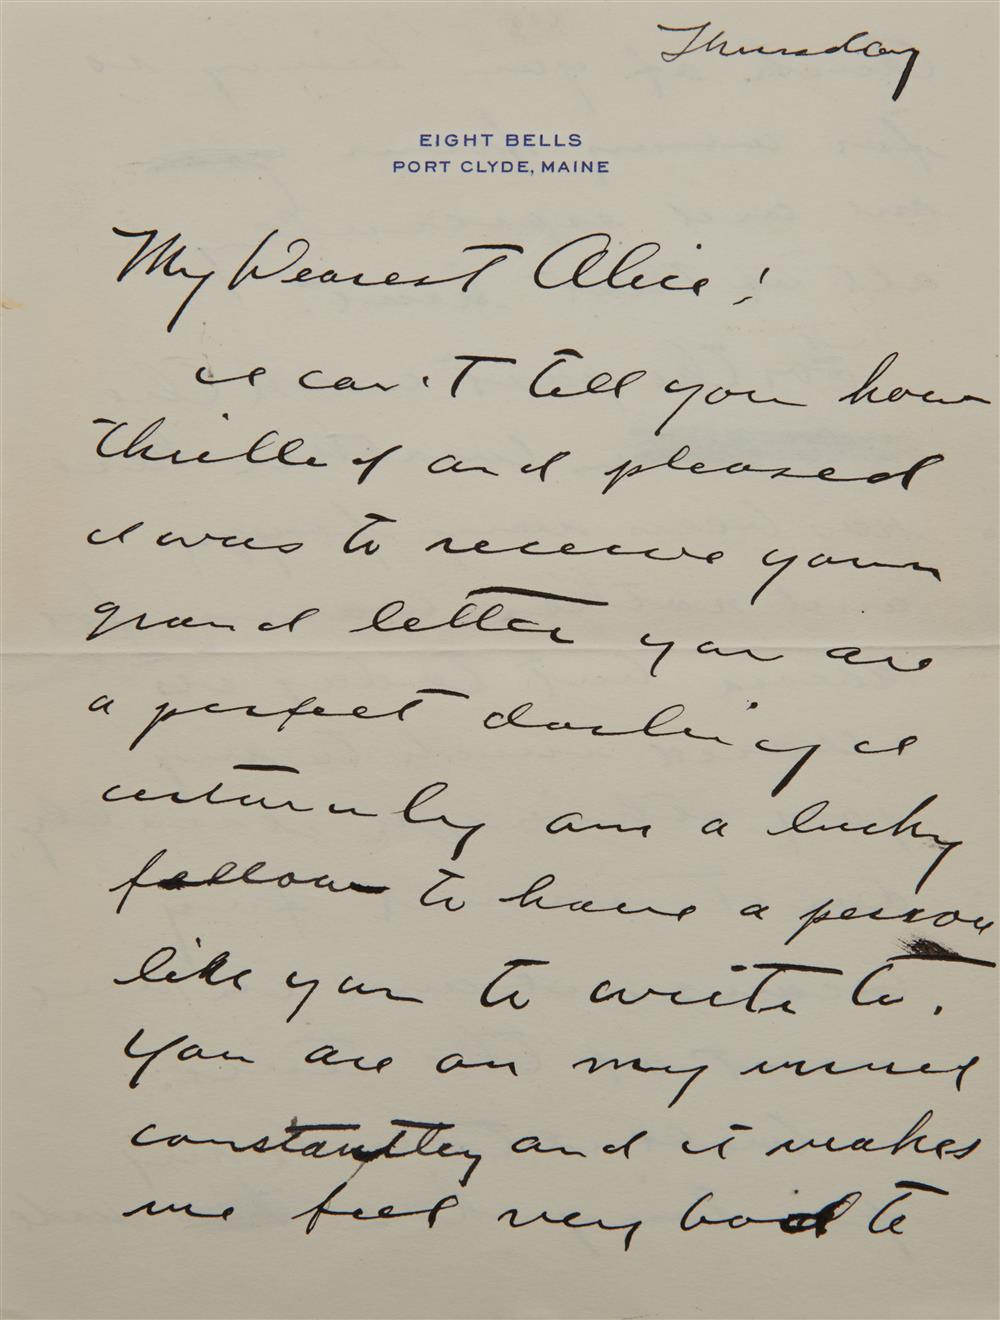 Thursday
EIGHT BELLS
PORT CLYDE, MAINE
My Dearest Alice!
I can't tell you how
thrilled and pleased
I was to receive your
grand letter you are
a perfect darling I
certainly am a lucky
fellow to have a person
like you to write to.
You are on my mind
constantly and it makes
me feel very bad to